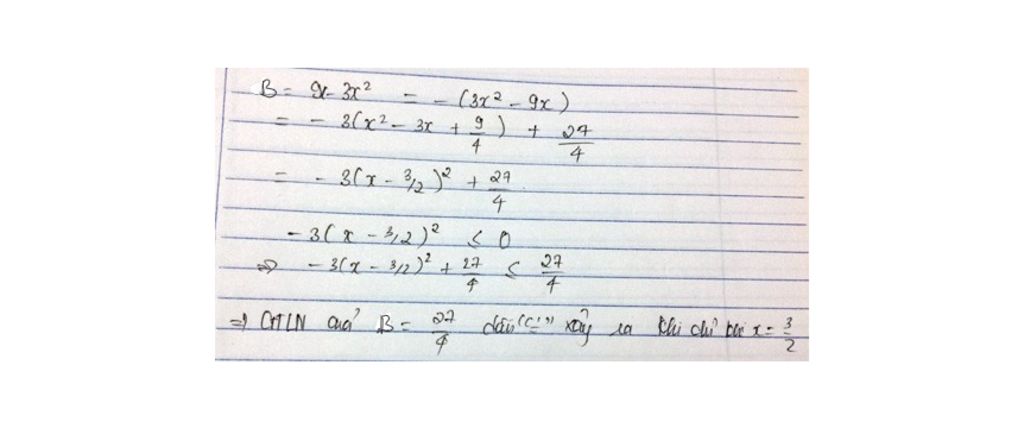 B = 9x - 3x² = - (3x² - 9x)
= - 3(x² - 3x + 9/4) + 27/4
= - 3(x - 3/2)² + 27/4
- 3(x - 3/2)² ≤ 0
=> - 3(x - 3/2)² + 27/4 ≤ 27/4
=> GTLN của B = 27/4 dấu "=" xảy ra khi chỉ khi x = 3/2